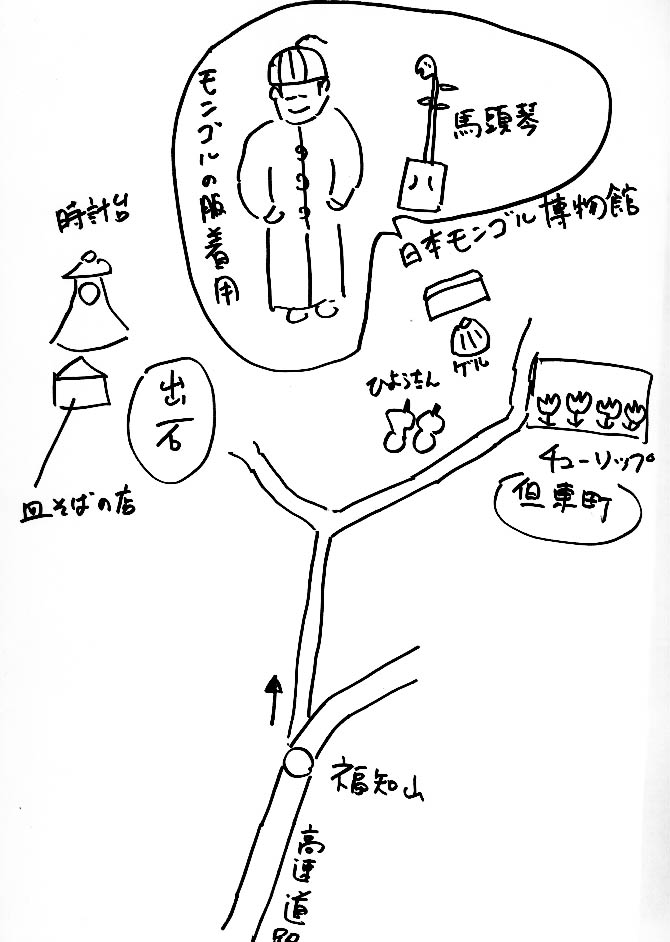 モンゴルの服着用
馬頭琴
日本モンゴル博物館
時計台
ゲル
ひょうたん
出石
チューリップ
但東町
皿そばの店
福知山
高速道路